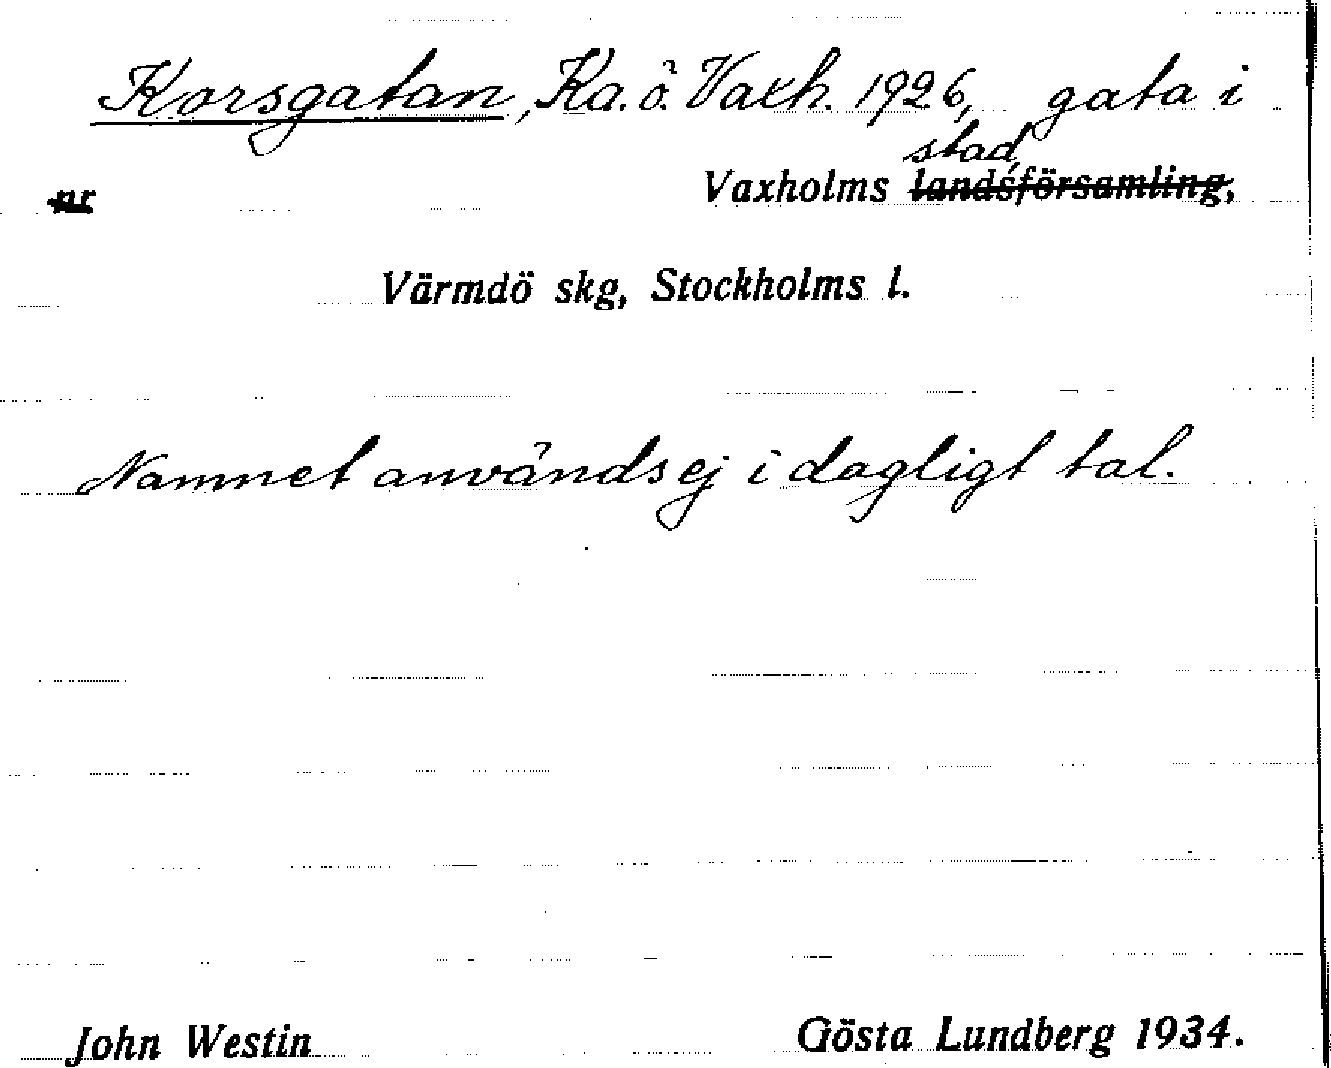 Korsgatan, Ka. ö. Vaxh. 1926, gata i
stad,
nr Vaxholms landsförsamling,
Värmdö skg, Stockholms l.
Namnet användsej i dagligt tal.
John Westin Gösta Lundberg 1934.